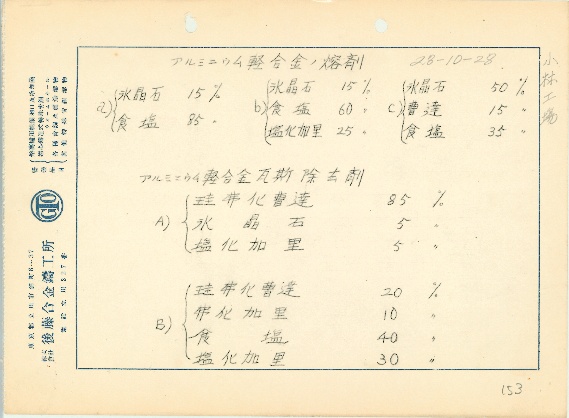 アルミニウム軽合金ノ熔剤 28-10-28
小林工場
a) 氷晶石 15 %
食塩 85 〃
b) 氷晶石 15 %
食塩 60 〃
塩化加里 25 〃
c) 氷晶石 50 %
曹達 15 〃
食塩 35 〃
アルミニウム軽合金瓦斯除去剤
A) 珪弗化曹達 85 %
氷晶石 5 〃
塩化加里 5 〃
B) 珪弗化曹達 20 %
弗化加里 10 〃
食塩 40 〃
塩化加里 30 〃
株式会社 後藤合金鑄工所
153